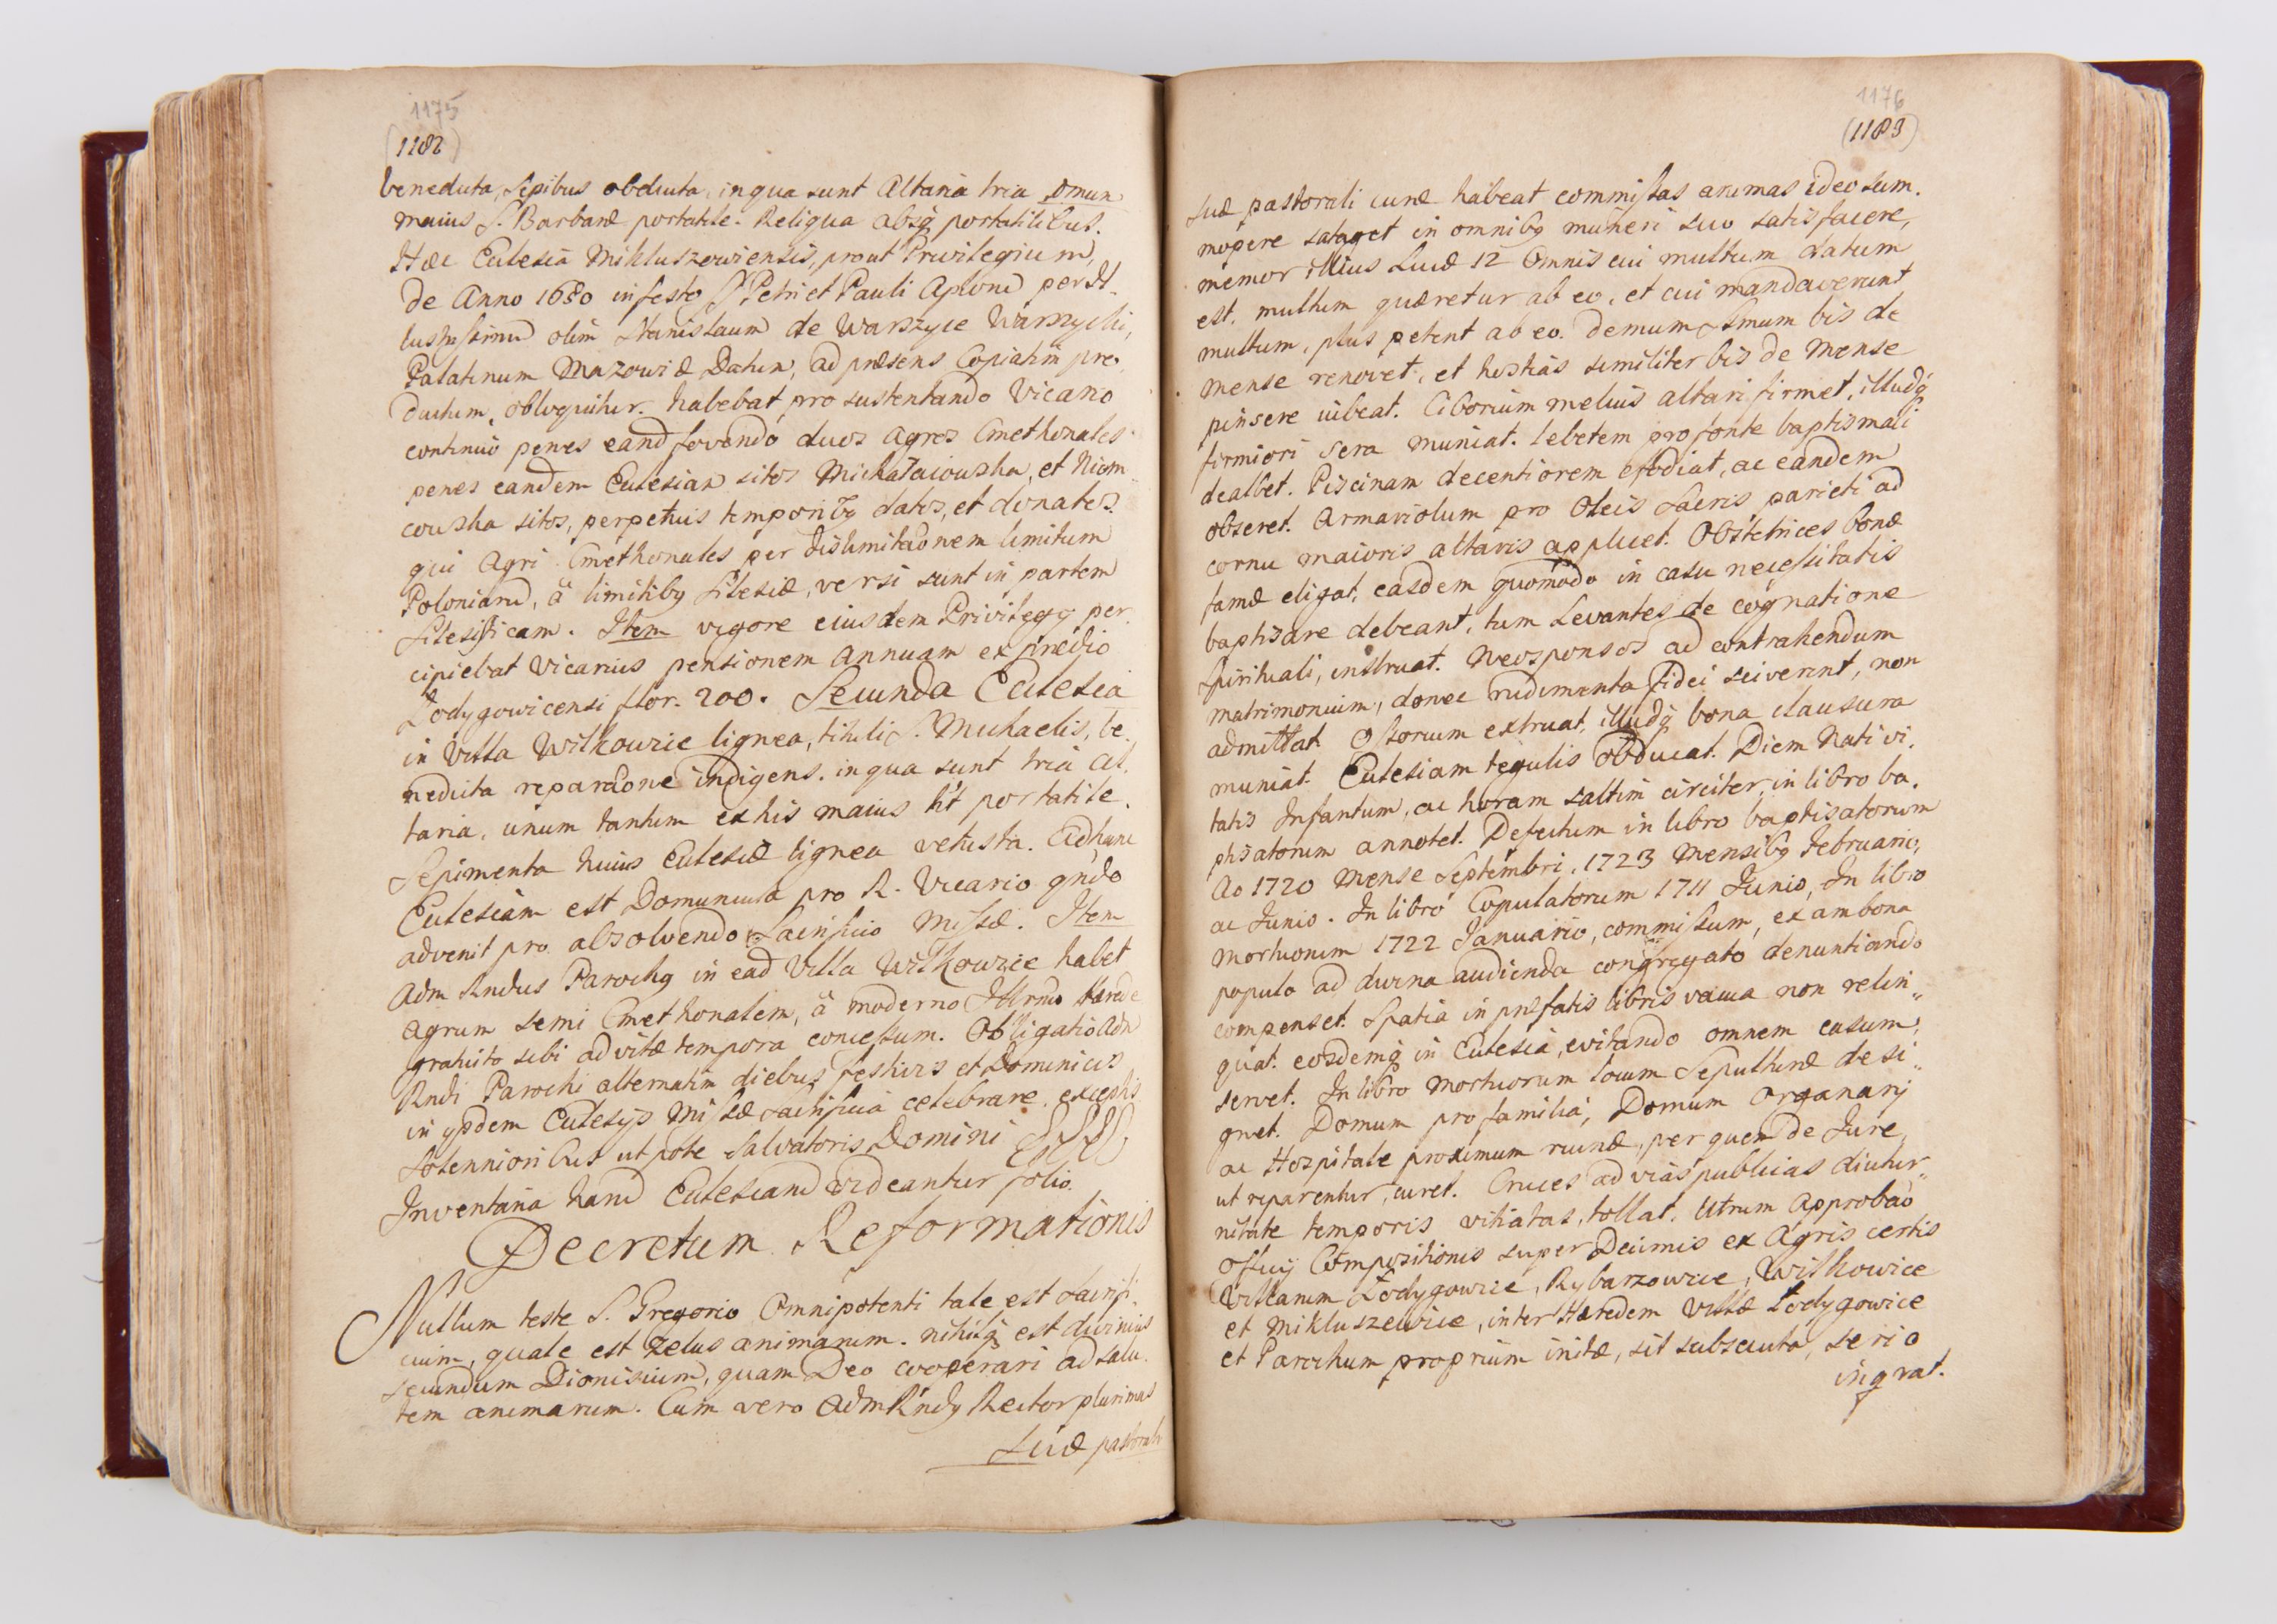 1175
(1182)
benedicta, sepibus obducta, in qua sunt Altaria tria omnium
maius S. Barbaræ portatile. Reliqua absq portatilibus.
Hæc Ecclesia Mikluszowiensis, prout Privilegium,
de Anno 1680 in festo S. Petri et Pauli Aplorum per Il-
lustrissimum olim Stanislaum de Warszyce Warszycki,
Palatinum Mazowiæ Datum, ad præsens Copiatim pro-
ductum, obloquitur. habebat pro sustentando Vicario
continuo penes eand fovendo duos Agros Cmethonales
penes eandem Ecclesiam sitos Michałaiowska, et Niem
cowska sitos, perpetuis temporibq datos, et donatos.
qui Agri Cmethonales per dislimitaonem limitum
Poloniarum, â limitibq Silesiæ, versi sunt in partem
Silesiticam. Item vigore eiusdem Privilegij per
cipiebat Vicarius pensionem annuam ex prædio
Łodygowicensi flor. 200. Secunda Ecclesia
in Villa Wilkowice lignea, tituli S. Michaelis, be-
nedicta reparaone indigens. in qua sunt tria Al-
taria, unum tantum ex his maius ht portatile.
Sepimenta huius Ecclesiæ lignea vetusta. Ad hanc
Ecclesiam est Domuncula pro R. Vicario qndo
advenit pro absolvendo Sacrificio Missæ. Item
Adm Rndus Parochq in ead Villa Wilkowice habet
agrum semi Cmethonalem, â moderno Illrmo Hærede
gratuito sibi ad vitæ tempora concessum. Obligatio Adm
Rndi Parochi alternatim diebus festivis et Dominicis
in ysdem Ecclesijs Missæ Sacrificia celebrare, exceptis
solennioribus utpote Salvatoris Domini
Inventaria harum Ecclesiarum videantur folio.
Decretum Reformationis
Nullum teste S. Gregorio Omnipotenti tale est sacrifi-
cium, quale est zelus animarum. nihilq est divinius
secundum Dionisium, quam Deo cooperari ad salu-
tem animarum. Cum vero Adm Rndq Rector plurimas
suæ pastorali
1176
(1183)
suæ pastorali curæ habeat commissas animas ideo sum-
mopere sataget in omnibq muneri suo satisfacere,
memor illius Lucæ 12 Omnis cui multum datum
est, multum quæretur ab eo, et cui mandaverunt
multum, plus petent ab eo. demum Smum bis de
mense renovet, et hostias similiter bis de Mense
pinsere iubeat. Ciborium melius altari firmet, illudq
firmiori sera muniat. lebetem pro fonte baptismali
dealbet. Piscinam decentiorem efodiat, ac eandem
obseret. Armariolum pro Oleis Sacris parieti ad
cornu maioris altaris applicet. Obstetrices bonæ
famæ eligat, easdem quomodo in casu necessitatis
baptisare debeant, tum Levantes de cognatione
Spirituali, instruat. Neosponsos ad contrahendum
matrimonium, donec rudimenta fidei sciverint, non
admittat. Ostorium extruat, illudq bona clausura
muniat. Ecclesiam tegulis obducat. Diem Nativi-
tatis Infantum, ac horam saltim circiter, in libro ba-
ptisatorum annotet. Defectum in libro baptisatorum
Ao 1720 mense Septembri, 1723 mensibq Februario,
ac Junio. In libro Copulatorum 1711 Junio, In libro
Mortuorum 1722 Januario, commissum, ex ambona
populo ad divina audienda congregato denuntiando
compenset. Spatia in præfatis libris vacua non relin-
quat. eosdemq in Ecclesia, evitando omnem casum,
servet. In libro Mortuorum locum Sepulturæ desi-
gnet. Domum pro familia, Domum Organarij
ac Hospitale proximum ruinæ, per quem de Jure,
ut reparentur, curet. Cruces ad vias publicas diutur-
nitate temporis vitiatas, tollat. Utrum Approbaõ
Officij Compositionis super Decimis ex Agris certis
Villarum Łodygowice, Rybarzowice, Wilkowice
et Mikluszewice, inter Hæredem Villæ Łodygowice
et Parochum proprium initæ, sit subsecuta, serio
inqrat.